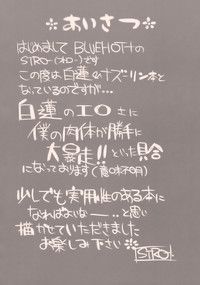 ＊あいさつ＊
はじめまして BLUEMOTHの
STRO-(ストロー)です
この度は白蓮とナズーリン本と
なっているのですが…
白蓮のエロさに
僕の肉体が勝手に
大暴走!!といった具合
になっております(意味不明)
少しでも実用性のある本に
なればいいなー‥と思い
描かせていただきました
お楽しみ下さい
STRO